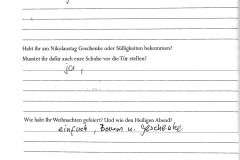 Habt ihr am Nikolaustag Geschenke oder Süßigkeiten bekommen?
Musstet ihr dafür auch eure Schuhe vor die Tür stellen?
ja,
Wie habt ihr Weihnachten gefeiert? Und wie den Heiligen Abend?
einfach, Baum u. Geschenke